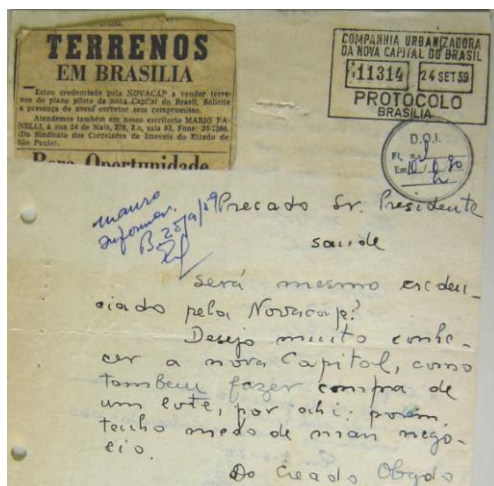 TERRENOS
EM BRASILIA
Estou credenciado pela NOVACAP a vender terre-
nos do plano piloto da nova Capital do Brasil. Solicite
a presença de nosso corretor sem compromisso.
Atendemos também em nosso escritorio MARIO FA-
NELLI, à rua 24 de Maio,
(Do Sindicato dos Corretores de Imoveis do Estado de
São Paulo).
Boa Oportunidade
COMPANHIA URBANIZADORA
DA NOVA CAPITAL DO BRASIL
11314 24 SET 59
PROTOCOLO
BRASÍLIA
D.O.I.
Fl.
Em
Mauro
Informar.
B 25/9/59
Precado Sr. Presidente
saude
será mesmo creden-
ciado pela Novacap?
Desejo muito conhe-
cer a nova Capital, como
tambem fazer compra de
um lote, por ahi; porém,
tenho medo de mau nego-
cio.
Do Creado Obgdo